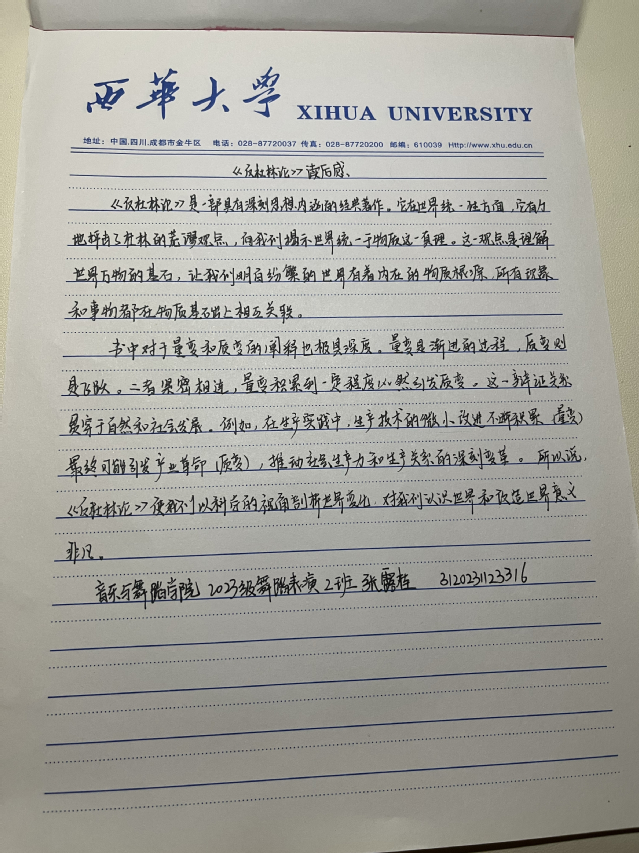 西華大学 XIHUA UNIVERSITY
地址：中国.四川.成都市金牛区 电话：028-87720037 传真：028-87720200 邮编：610039 Http://www.xhu.edu.cn
《反杜林论》读后感、
《反杜林论》是一部具有深刻思想内涵的经典著作。它在世界统一性方面，它有力
地抨击了杜林的荒谬观点，向我们揭示世界统一于物质这一真理。这一观点是理解
世界万物的基石，让我们明白纷繁的世界有着内在的物质根源，所有现象
和事物都在物质基础上相互关联。
书中对于量变和质变的阐释也极具深度。量变是渐进的过程，质变则
是飞跃。二者紧密相连，量变积累到一定程度必然引发质变。这一辩证关系
贯穿于自然和社会发展。例如，在生产实践中，生产技术的微小改进不断积累（量变）
最终可能引发产业革命（质变），推动社会生产力和生产关系的深刻变革。所以说，
《反杜林论》使我们以科学的视角剖析世界变化，对我们认识世界和改造世界意义
非凡。
音乐与舞蹈学院 2023级舞蹈表演2班 张露桂 3120231123316